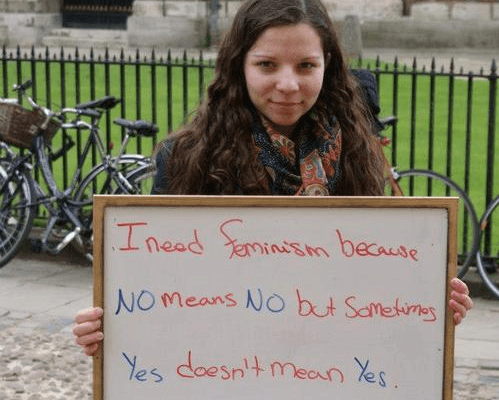 I need feminism because
NO means NO but sometimes
Yes doesn't mean Yes.